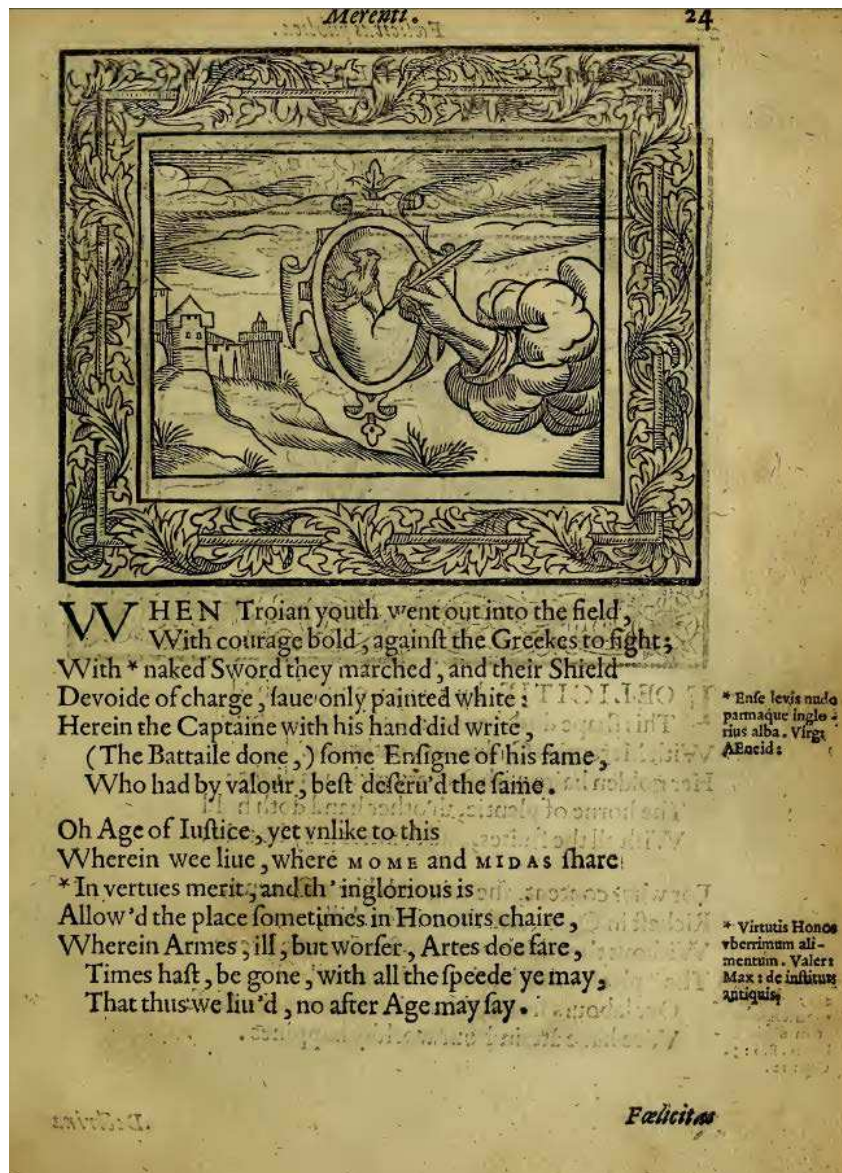 Merenti.
24
WHEN Troian youth went out into the field,
With courage bold, againſt the Greekes to fight;
With * naked Sword they marched, and their Shield
Devoide of charge, ſaue only painted white:
Herein the Captaine with his hand did write,
(The Battaile done,) ſome Enſigne of his fame,
Who had by valour, beſt deſeru'd the ſame.
* Enſe levis nudo
parmaque inglo-
rius alba. Virg:
AEneid:
Oh Age of Iuſtice, yet vnlike to this
Wherein wee liue, where MOME and MIDAS ſhare
* In vertues merit, and th' inglorious is
Allow'd the place ſometimes in Honours chaire,
Wherein Armes, ill, but worſer, Artes doe fare,
Times haſt, be gone, with all the ſpeede ye may,
That thus we liu'd, no after Age may ſay.
* Virtutis Honos
vberrimum ali-
mentum. Valer:
Max: de inſtitut:
antiquis;
Fœlicitas